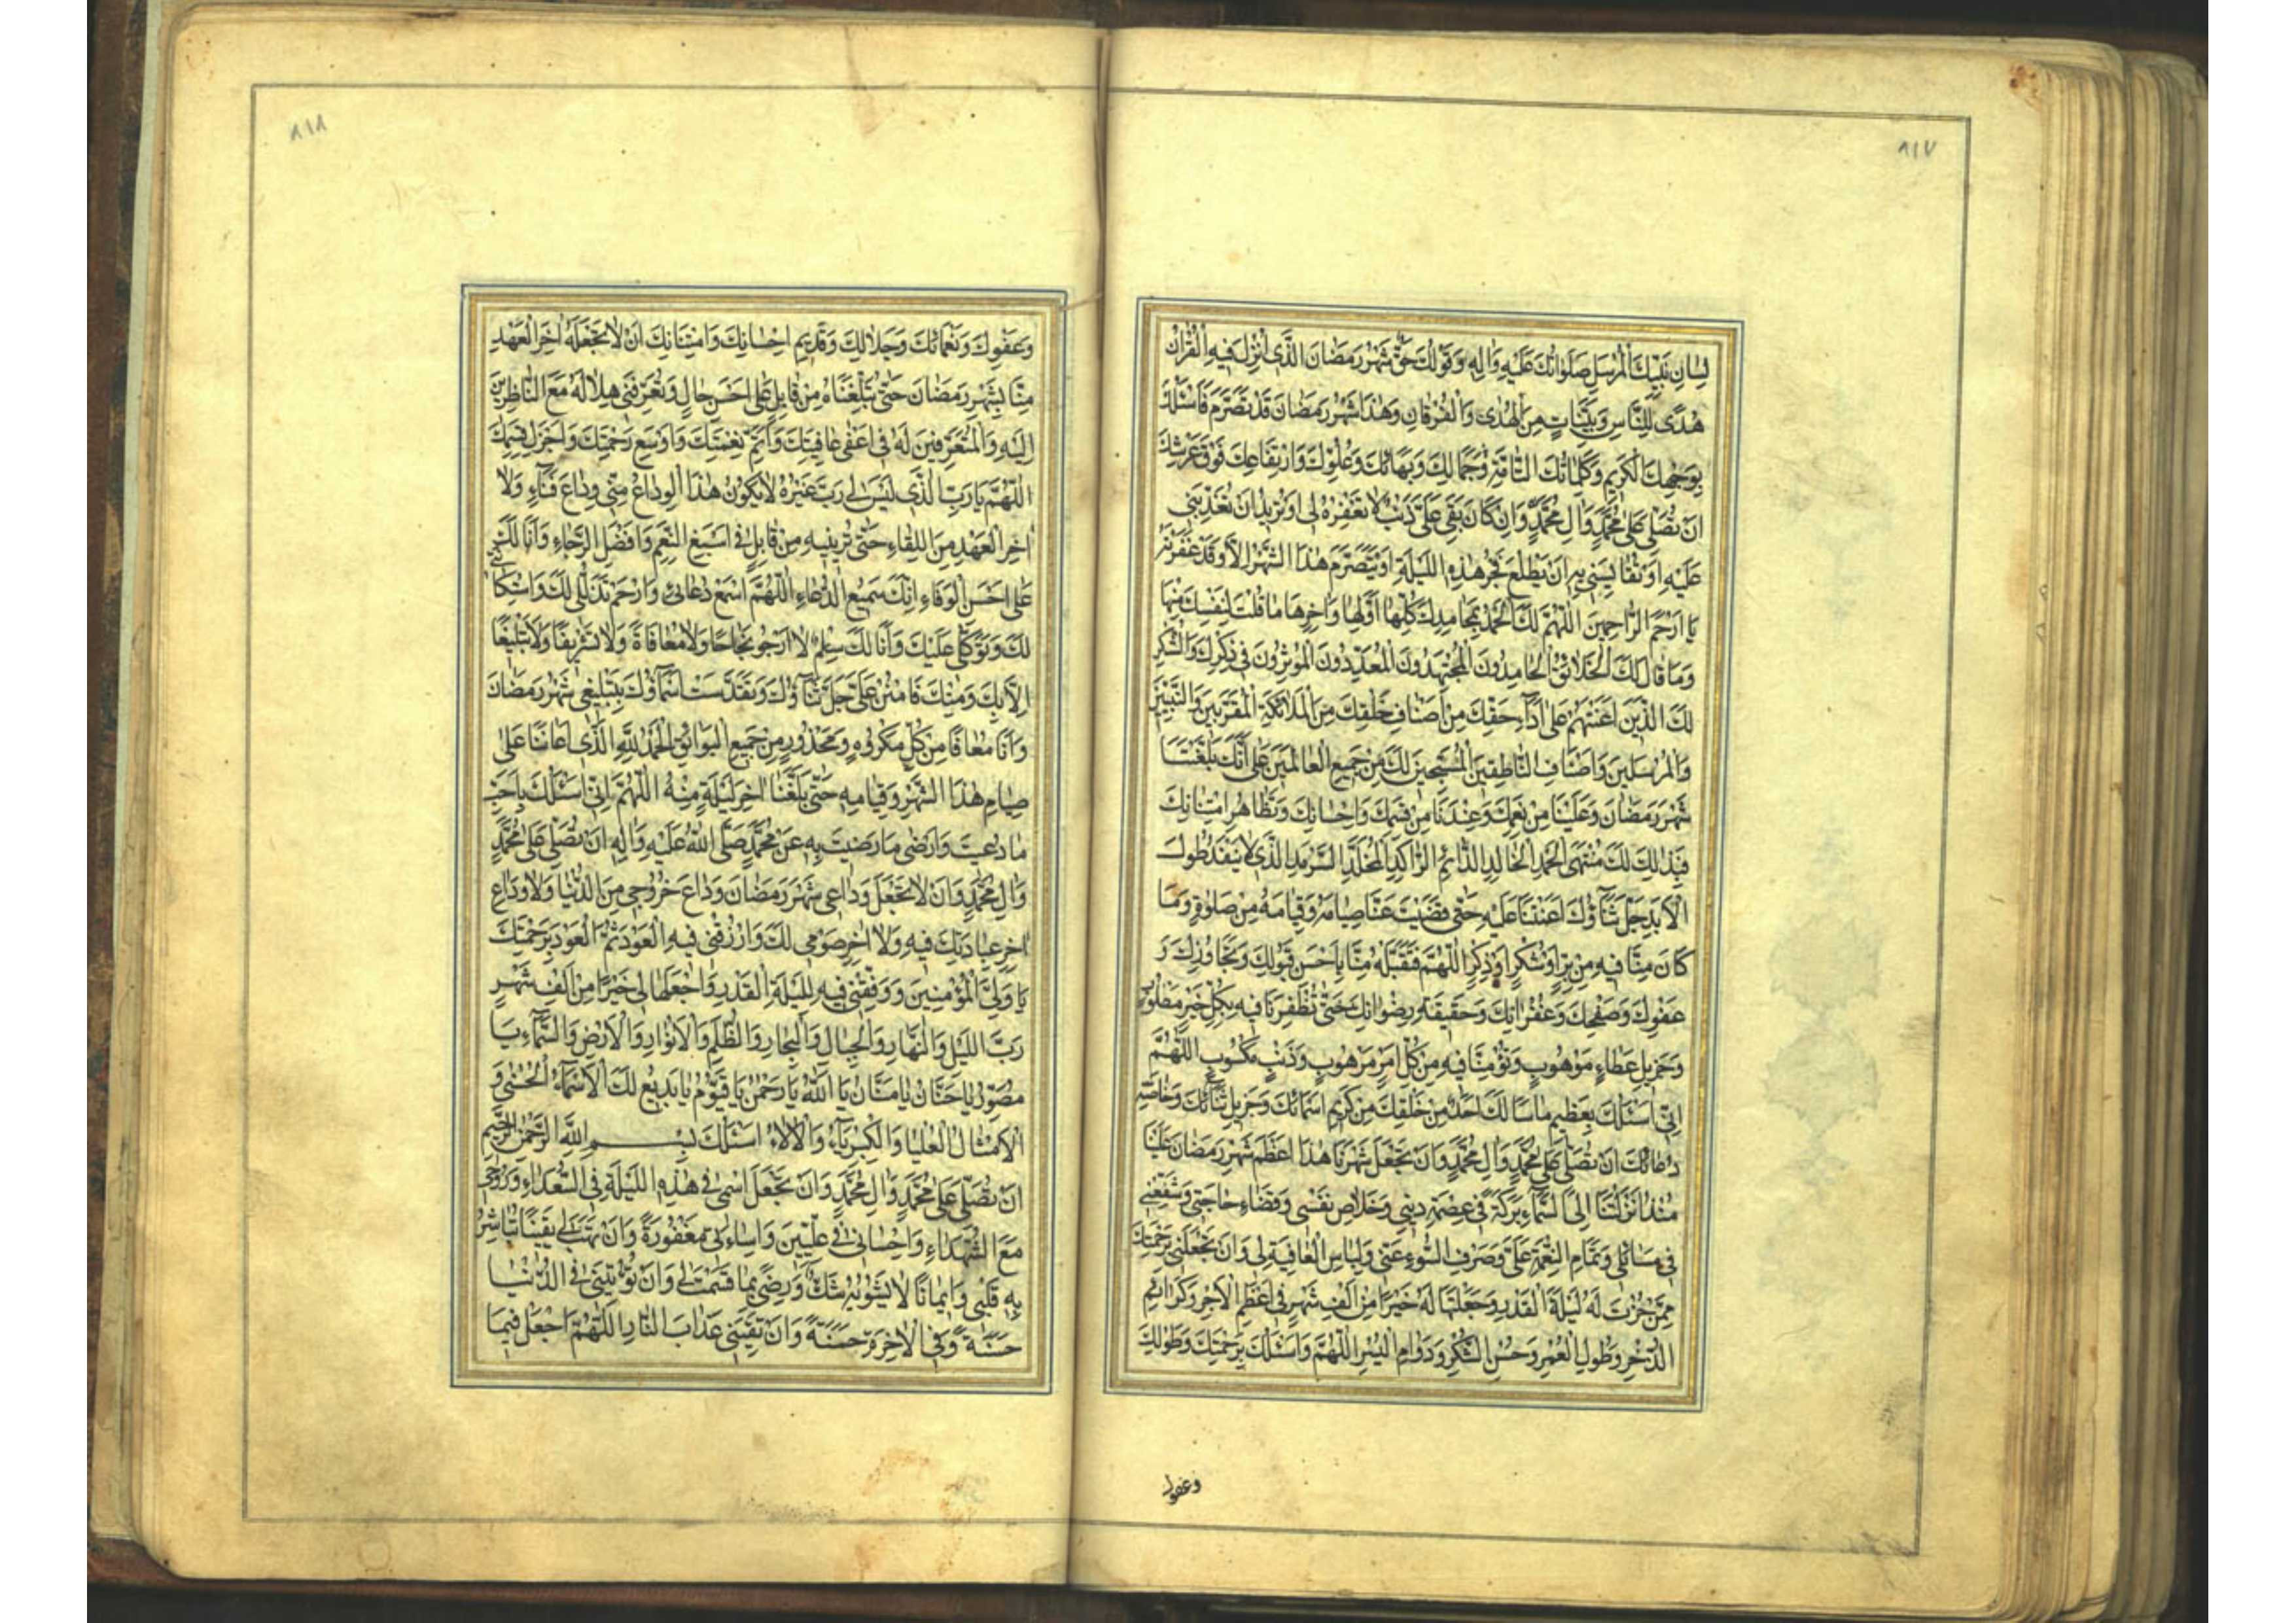 ٨١٧
لِسَانِ نَبِيِّكَ الْمُرْسَلِ صَلَوَاتُكَ عَلَيْهِ وَاٰلِهِ وَقَوْلُكَ حَقٌّ شَهْرُ رَمَضَانَ الَّذِي اُنْزِلَ فِيهِ الْقُرْاٰنُ
هُدًى لِلنَّاسِ وَبَيِّنَاتٍ مِنَ الْهُدٰى وَالْفُرْقَانِ وَهٰذَا شَهْرُ رَمَضَانَ قَدْ تَصَرَّمَ فَاَسْئَلُكَ
بِوَجْهِكَ الْكَرِيمِ وَكَلِمَاتِكَ التَّامَّةِ وَجَمَالِكَ وَبَهَائِكَ وَعُلُوِّكَ وَارْتِفَاعِكَ فَوْقَ عَرْشِكَ
اَنْ تُصَلِّيَ عَلٰى مُحَمَّدٍ وَاٰلِ مُحَمَّدٍ وَاِنْ كَانَ بَقِيَ عَلَيَّ ذَنْبٌ لَا تَغْفِرُهُ لِي اَوْ تُرِيدُ اَنْ تُعَذِّبَنِي
عَلَيْهِ اَوْ تُقَايِسَنِي بِهِ اَنْ يَطْلُعَ فَجْرُ هٰذِهِ اللَّيْلَةِ اَوْ يَتَصَرَّمَ هٰذَا الشَّهْرُ اِلَّا وَقَدْ غَفَرْتَهُ
يَا اَرْحَمَ الرَّاحِمِينَ اَللّٰهُمَّ لَكَ الْحَمْدُ بِمَحَامِدِكَ كُلِّهَا اَوَّلِهَا وَاٰخِرِهَا مَا قُلْتَ لِنَفْسِكَ مِنْهَا
وَمَا قَالَ لَكَ الْخَلَائِقُ الْحَامِدُونَ الْمُجْتَهِدُونَ الْمُعَدِّدُونَ الْمُؤْثِرُونَ فِي ذِكْرِكَ وَالشُّكْرِ
لَكَ الَّذِينَ اَعَنْتَهُمْ عَلٰى اَدَاءِ حَقِّكَ مِنْ اَصْنَافِ خَلْقِكَ مِنَ الْمَلَائِكَةِ الْمُقَرَّبِينَ وَالنَّبِيِّينَ
وَالْمُرْسَلِينَ وَاَصْنَافِ النَّاطِقِينَ الْمُسَبِّحِينَ لَكَ مِنْ جَمِيعِ الْعَالَمِينَ عَلٰى اَنَّكَ بَلَّغْتَنَا
شَهْرَ رَمَضَانَ وَعَلَيْنَا مِنْ نِعَمِكَ وَعِنْدَنَا مِنْ قِسَمِكَ وَاِحْسَانِكَ وَتَظَاهُرِ امْتِنَانِكَ
فَبِذٰلِكَ لَكَ مُنْتَهَى الْحَمْدِ الْخَالِدِ الدَّائِمِ الرَّاكِدِ الْمُخَلَّدِ السَّرْمَدِ الَّذِي لَا يَنْفَدُ طُولَ
الْاَبَدِ جَلَّ ثَنَاؤُكَ اَعَنْتَنَا عَلَيْهِ حَتّٰى قَضَيْتَ عَنَّا صِيَامَهُ وَقِيَامَهُ مِنْ صَلٰوةٍ وَمَا
كَانَ مِنَّا فِيهِ مِنْ بِرٍّ اَوْ شُكْرٍ اَوْ ذِكْرٍ اَللّٰهُمَّ فَتَقَبَّلْهُ مِنَّا بِاَحْسَنِ قَبُولِكَ وَتَجَاوُزِكَ وَ
عَفْوِكَ وَصَفْحِكَ وَغُفْرَانِكَ وَحَقِيقَةِ رِضْوَانِكَ حَتّٰى تُظْفِرَنَا فِيهِ بِكُلِّ خَيْرٍ مَطْلُوبٍ
وَجَزِيلِ عَطَاءٍ مَوْهُوبٍ وَتُؤْمِنَنَا فِيهِ مِنْ كُلِّ اَمْرٍ مَرْهُوبٍ وَذَنْبٍ مَكْسُوبٍ اَللّٰهُمَّ
اِنِّي اَسْئَلُكَ بِعَظِيمِ مَا سَاَلَكَ اَحَدٌ مِنْ خَلْقِكَ مِنْ كَرِيمِ اَسْمَائِكَ وَجَزِيلِ ثَنَائِكَ وَخَاصَّةِ
دُعَائِكَ اَنْ تُصَلِّيَ عَلٰى مُحَمَّدٍ وَاٰلِ مُحَمَّدٍ وَاَنْ تَجْعَلَ شَهْرَنَا هٰذَا اَعْظَمَ شَهْرِ رَمَضَانَ عَلَيْنَا
مُنْذُ اَنْزَلْتَنَا اِلَى السَّمَاءِ بَرَكَةً فِي عِصْمَةِ دِينِي وَخَلَاصِ نَفْسِي وَقَضَاءِ حَاجَتِي وَتُشَفِّعَنِي
فِي مَسَائِلِي وَتَمَامِ النِّعْمَةِ عَلَيَّ وَصَرْفِ السُّوءِ عَنِّي وَلِبَاسِ الْعَافِيَةِ لِي وَاَنْ تَجْعَلَنِي بِرَحْمَتِكَ
مِمَّنْ حُزْتَ لَهُ لَيْلَةَ الْقَدْرِ وَجَعَلْتَهَا لَهُ خَيْرًا مِنْ اَلْفِ شَهْرٍ فِي اَعْظَمِ الْاَجْرِ وَكَرَائِمِ
الذُّخْرِ وَطُولِ الْعُمْرِ وَحُسْنِ الشُّكْرِ وَدَوَامِ الْيُسْرِ اَللّٰهُمَّ وَاَسْئَلُكَ بِرَحْمَتِكَ وَطَوْلِكَ
وعفوك
٨١٨
وَعَفْوِكَ وَنَعْمَائِكَ وَجَلَالِكَ وَقَدِيمِ اِحْسَانِكَ وَامْتِنَانِكَ اَنْ لَا تَجْعَلَهُ اٰخِرَ الْعَهْدِ
مِنَّا بِشَهْرِ رَمَضَانَ حَتّٰى تُبَلِّغَنَاهُ مِنْ قَابِلٍ عَلٰى اَحْسَنِ حَالٍ وَتُعَرِّفَنِي هِلَالَهُ مَعَ النَّاظِرِينَ
اِلَيْهِ وَالْمُتَعَرِّفِينَ لَهُ فِي اَعْفٰى عَافِيَتِكَ وَاَتَمِّ نِعْمَتِكَ وَاَوْسَعِ رَحْمَتِكَ وَاَجْزَلِ قِسَمِكَ
اَللّٰهُمَّ يَا رَبِّ الَّذِي لَيْسَ لِي رَبٌّ غَيْرُهُ لَا يَكُونُ هٰذَا الْوِدَاعُ مِنِّي وِدَاعَ فَنَاءٍ وَلَا
اٰخِرَ الْعَهْدِ مِنَ اللِّقَاءِ حَتّٰى تُرِيَنِيهِ مِنْ قَابِلٍ فِي اَسْبَغِ النِّعَمِ وَاَفْضَلِ الرَّجَاءِ وَاَنَا لَكَ
عَلٰى اَحْسَنِ الْوَفَاءِ اِنَّكَ سَمِيعُ الدُّعَاءِ اَللّٰهُمَّ اسْمَعْ دُعَائِي وَارْحَمْ تَذَلُّلِي لَكَ وَاسْتِكَانَتِي
لَكَ وَتَوَكُّلِي عَلَيْكَ وَاَنَا لَكَ سِلْمٌ لَا اَرْجُو نَجَاحًا وَلَا مُعَافَاةً وَلَا تَشْرِيفًا وَلَا تَبْلِيغًا
اِلَّا بِكَ وَمِنْكَ فَامْنُنْ عَلَيَّ جَلَّ ثَنَاؤُكَ وَتَقَدَّسَتْ اَسْمَاؤُكَ بِتَبْلِيغِي شَهْرَ رَمَضَانَ
وَاَنَا مُعَافًا مِنْ كُلِّ مَكْرُوهٍ وَمَحْذُورٍ مِنْ جَمِيعِ الْبَوَائِقِ الْحَمْدُ لِلّٰهِ الَّذِي اَعَانَنَا عَلٰى
صِيَامِ هٰذَا الشَّهْرِ وَقِيَامِهِ حَتّٰى بَلَّغَنَا اٰخِرَ لَيْلَةٍ مِنْهُ اَللّٰهُمَّ اِنِّي اَسْئَلُكَ بِاَحَبِّ
مَا دُعِيتَ وَاَرْضٰى مَا رَضِيتَ بِهِ عَنْ مُحَمَّدٍ صَلَّى اللّٰهُ عَلَيْهِ وَاٰلِهِ اَنْ تُصَلِّيَ عَلٰى مُحَمَّدٍ
وَاٰلِ مُحَمَّدٍ وَاَنْ لَا تَجْعَلَ وَدَاعِي شَهْرَ رَمَضَانَ وَدَاعَ خُرُوجِي مِنَ الدُّنْيَا وَلَا وَدَاعَ
اٰخِرِ عِبَادَتِكَ فِيهِ وَلَا اٰخِرَ صَوْمِي لَكَ وَارْزُقْنِي فِيهِ الْعَوْدَ ثُمَّ الْعَوْدَ بِرَحْمَتِكَ
يَا وَلِيَّ الْمُؤْمِنِينَ وَوَفِّقْنِي فِيهِ لِلَيْلَةِ الْقَدْرِ وَاجْعَلْهَا لِي خَيْرًا مِنْ اَلْفِ شَهْرٍ
رَبَّ اللَّيْلِ وَالنَّهَارِ وَالْجِبَالِ وَالْبِحَارِ وَالظُّلَمِ وَالْاَنْوَارِ وَالْاَرْضِ وَالسَّمَاءِ يَا
مُصَوِّرُ يَا حَنَّانُ يَا مَنَّانُ يَا اَللّٰهُ يَا رَحْمٰنُ يَا قَيُّومُ يَا بَدِيعُ لَكَ الْاَسْمَاءُ الْحُسْنٰى وَ
الْاَمْثَالُ الْعُلْيَا وَالْكِبْرِيَاءُ وَالْاٰلَاءُ اَسْئَلُكَ بِسْمِ اللّٰهِ الرَّحْمٰنِ الرَّحِيمِ
اَنْ تُصَلِّيَ عَلٰى مُحَمَّدٍ وَاٰلِ مُحَمَّدٍ وَاَنْ تَجْعَلَ اسْمِي فِي هٰذِهِ اللَّيْلَةِ فِي السُّعَدَاءِ وَرُوحِي
مَعَ الشُّهَدَاءِ وَاِحْسَانِي فِي عِلِّيِّينَ وَاِسَاءَتِي مَغْفُورَةً وَاَنْ تَهَبَ لِي يَقِينًا تُبَاشِرُ
بِهِ قَلْبِي وَاِيمَانًا لَا يَشُوبُهُ شَكٌّ وَرِضًى بِمَا قَسَمْتَ لِي وَاَنْ تُؤْتِيَنِي فِي الدُّنْيَا
حَسَنَةً وَفِي الْاٰخِرَةِ حَسَنَةً وَاَنْ تَقِيَنِي عَذَابَ النَّارِ اَللّٰهُمَّ اجْعَلْ فِيمَا